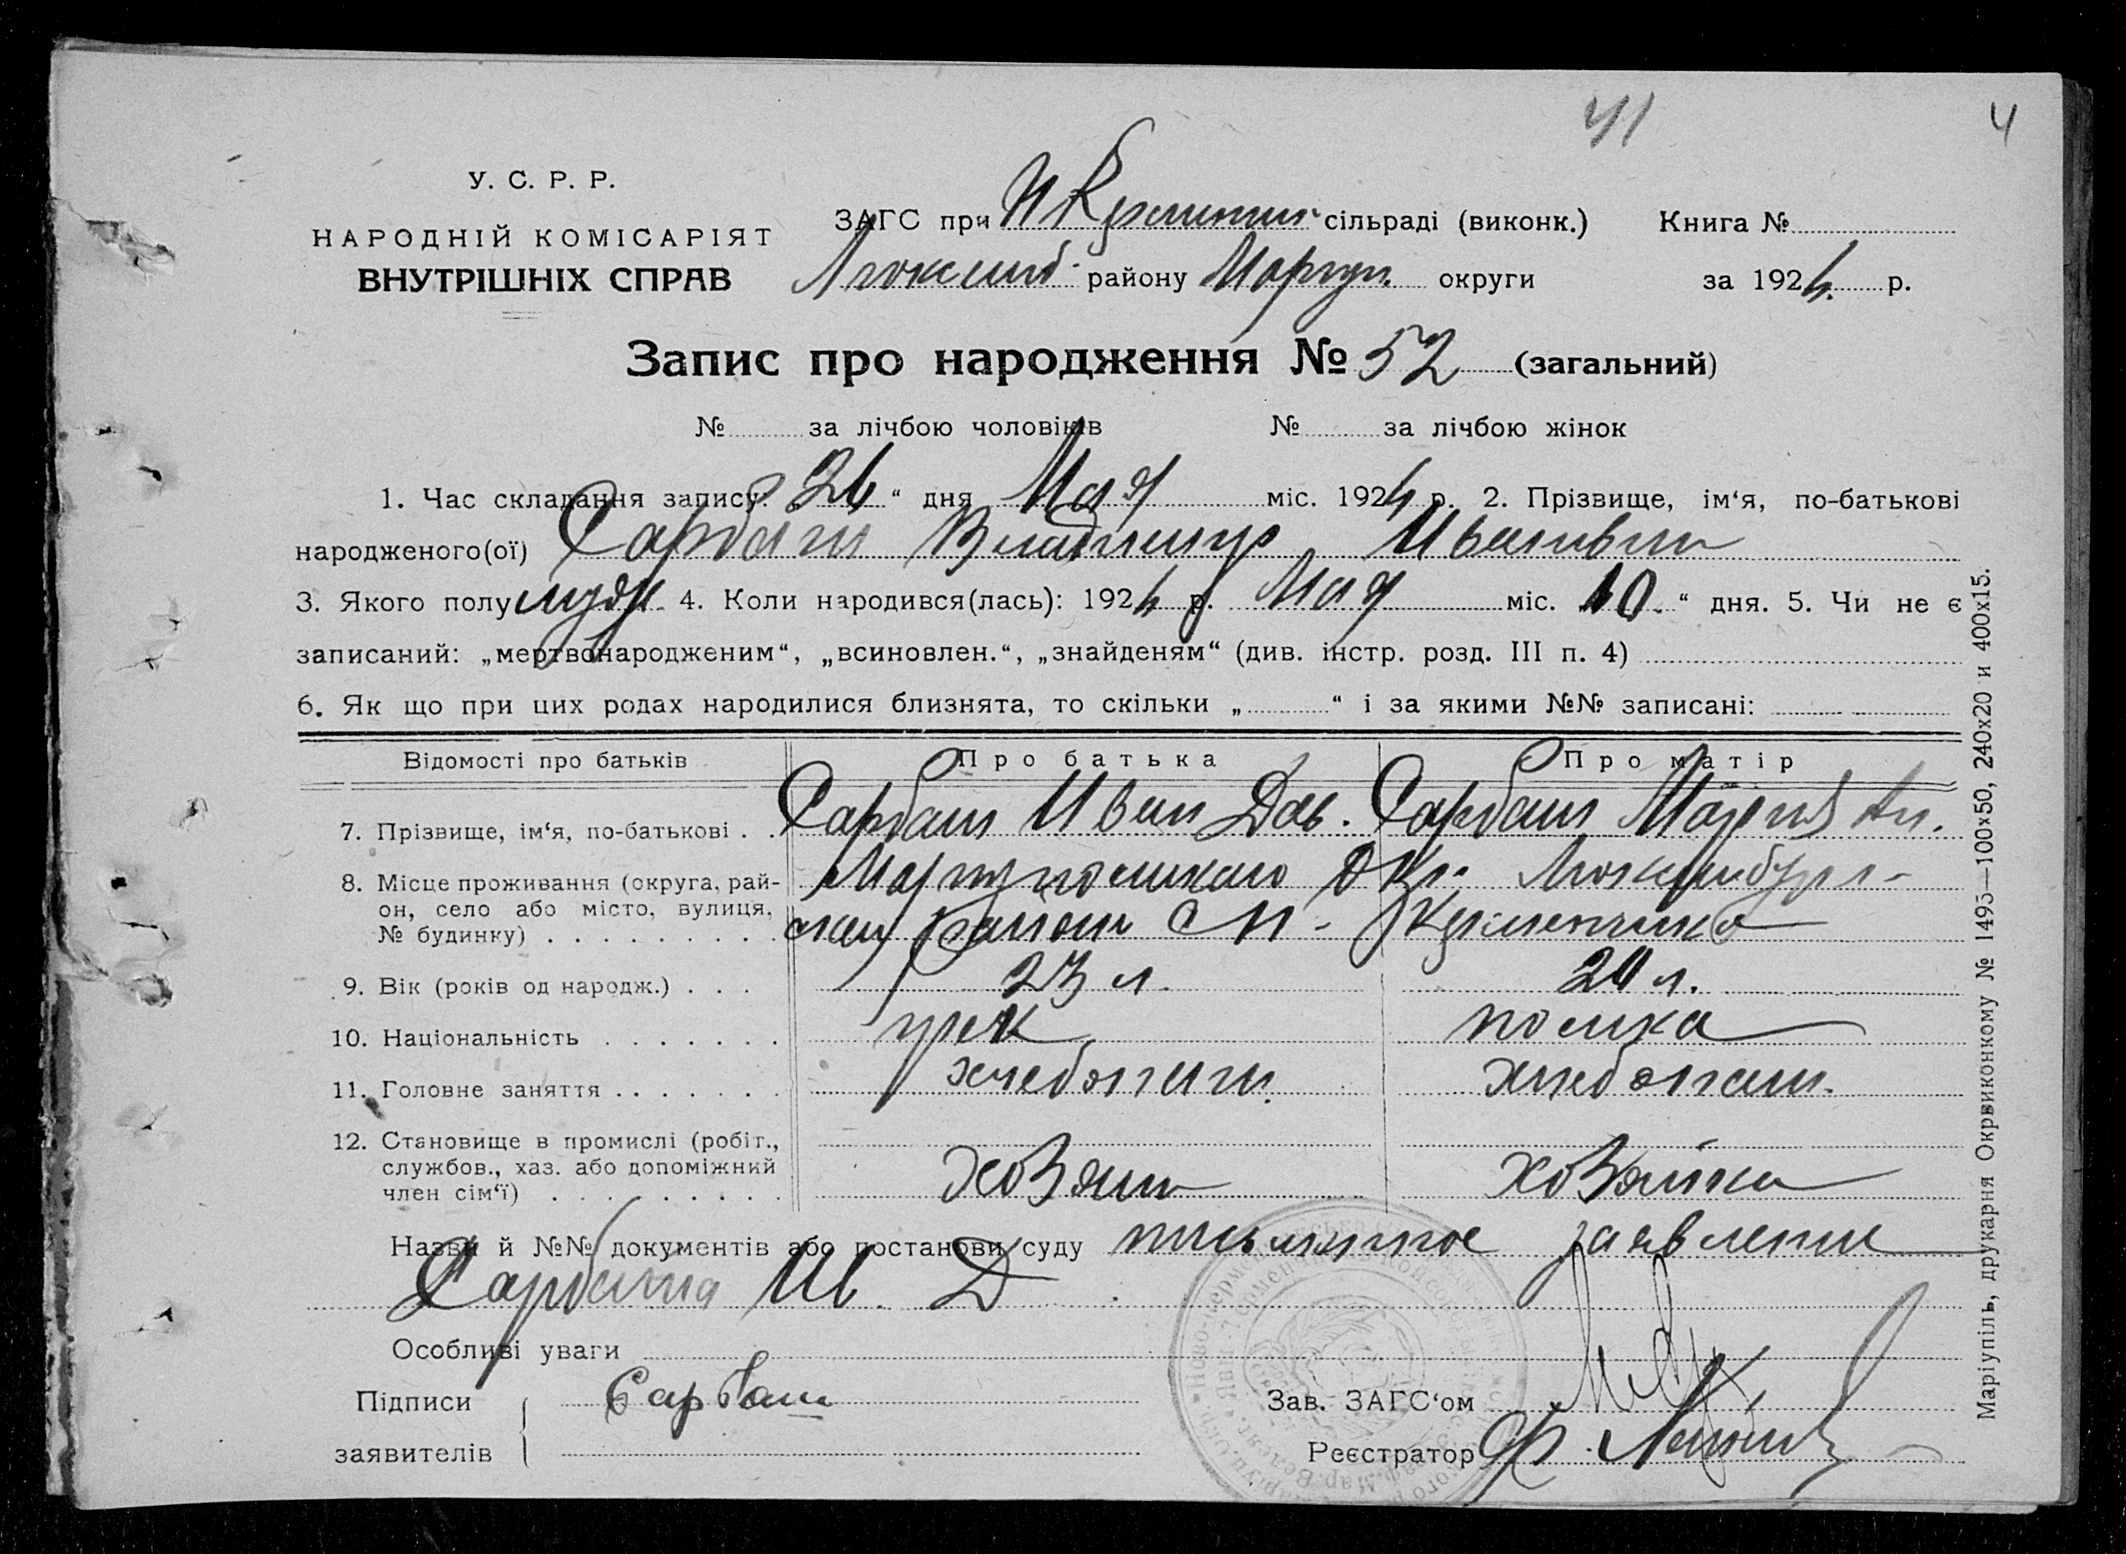 41
4
У. С. Р. Р.
НАРОДНІЙ КОМІСАРІЯТ
ВНУТРІШНІХ СПРАВ
ЗАГС при сільраді (виконк.) Книга №
району Мариуп. округи за 1924 р.
Запис про народження № 52 (загальний)
№ за лічбою чоловіків № за лічбою жінок
1. Час складання запису: 26 “ дня Мая міс. 1924 р. 2. Прізвище, ім‘я, по-батькові
народженого(ої) Сарбаш Владимир Иванович
3. Якого полу муж. 4. Коли народився(лась): 1924 р. Мая міс. 10 “ дня. 5. Чи не є
записаний: „мертвонародженим“, „всиновлен.“, „знайденям“ (див. інстр. розд. III п. 4)
6. Як що при цих родах народилися близнята, то скільки „ “ і за якими №№ записані:
Відомості про батьків Про батька Про матір
7. Прізвище, ім‘я, по-батькові . . Сарбаш Иван Дав. Сарбаш Мария Ан.
8. Місце проживання (округа, рай-он, село або місто, вулиця, № будинку) Мариупольского Окр. Люксембург-
ского района с Н - Керменчика
9. Вік (років од народж.) . . . 23 л. 20 л.
10. Національність грек полька
11. Головне заняття хлебопаш. хлебопаш.
12. Становище в промислі (робіт.,
службов., хаз. або допоміжний
член сім‘ї) хозяин хозяйка
Назви й №№ документів або постанови суду письменное заявление
Сарбаша Ив. Д
Особливі уваги
Підписи Сарбаш Зав. ЗАГС‘ом
заявителів Реєстратор
Маріупіль, друкарня Окрвиконкому № 1495—100х50, 240х20 и 400х15.